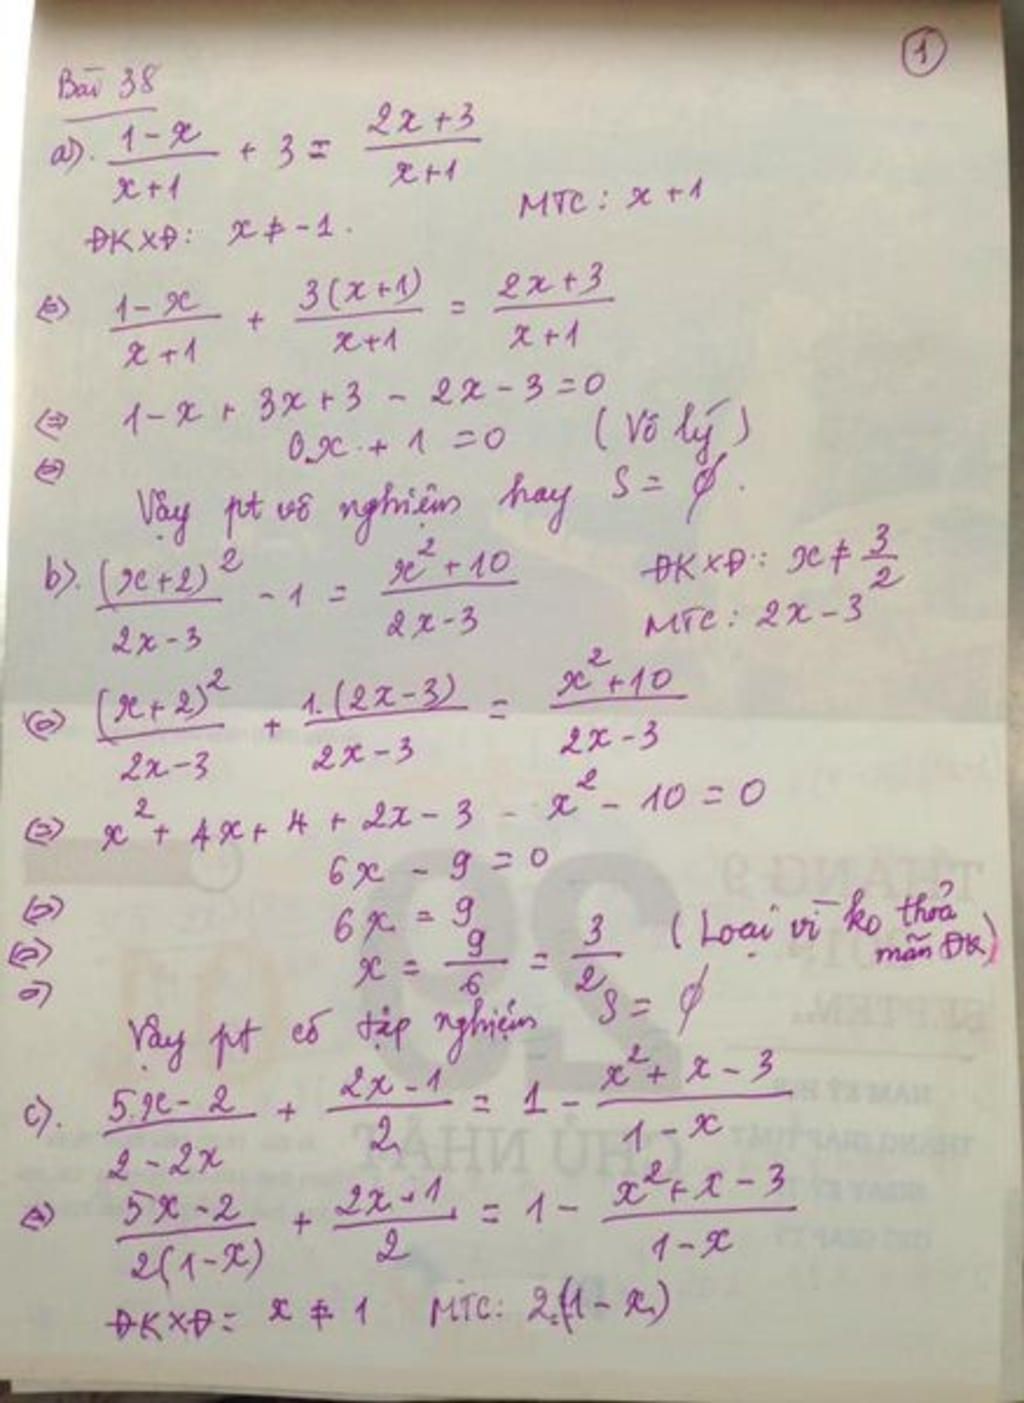 1
Bài 38
a). (1-x)/(x+1) + 3 = (2x+3)/(x+1)
ĐKXĐ: x ≠ -1. MTC: x+1
⇔ (1-x)/(x+1) + 3(x+1)/(x+1) = (2x+3)/(x+1)
⇔ 1-x+3x+3-2x-3=0
⇔ 0x+1=0 (Vô lý)
Vậy pt vô nghiệm hay S = ∅.
b). (x+2)²/(2x-3) - 1 = (x²+10)/(2x-3) ĐKXĐ: x ≠ 3/2
MTC: 2x-3
⇔ (x+2)²/(2x-3) + 1.(2x-3)/(2x-3) = (x²+10)/(2x-3)
⇔ x²+4x+4+2x-3-x²-10=0
⇔ 6x-9=0
⇔ 6x=9
⇔ x = 9/6 = 3/2 (Loại vì ko thoả mãn ĐK)
Vậy pt có tập nghiệm S = ∅
c). (5x-2)/(2-2x) + (2x-1)/2 = 1 - (x²+x-3)/(1-x)
⇔ (5x-2)/(2(1-x)) + (2x-1)/2 = 1 - (x²+x-3)/(1-x)
ĐKXĐ= x ≠ 1 MTC: 2.(1-x)